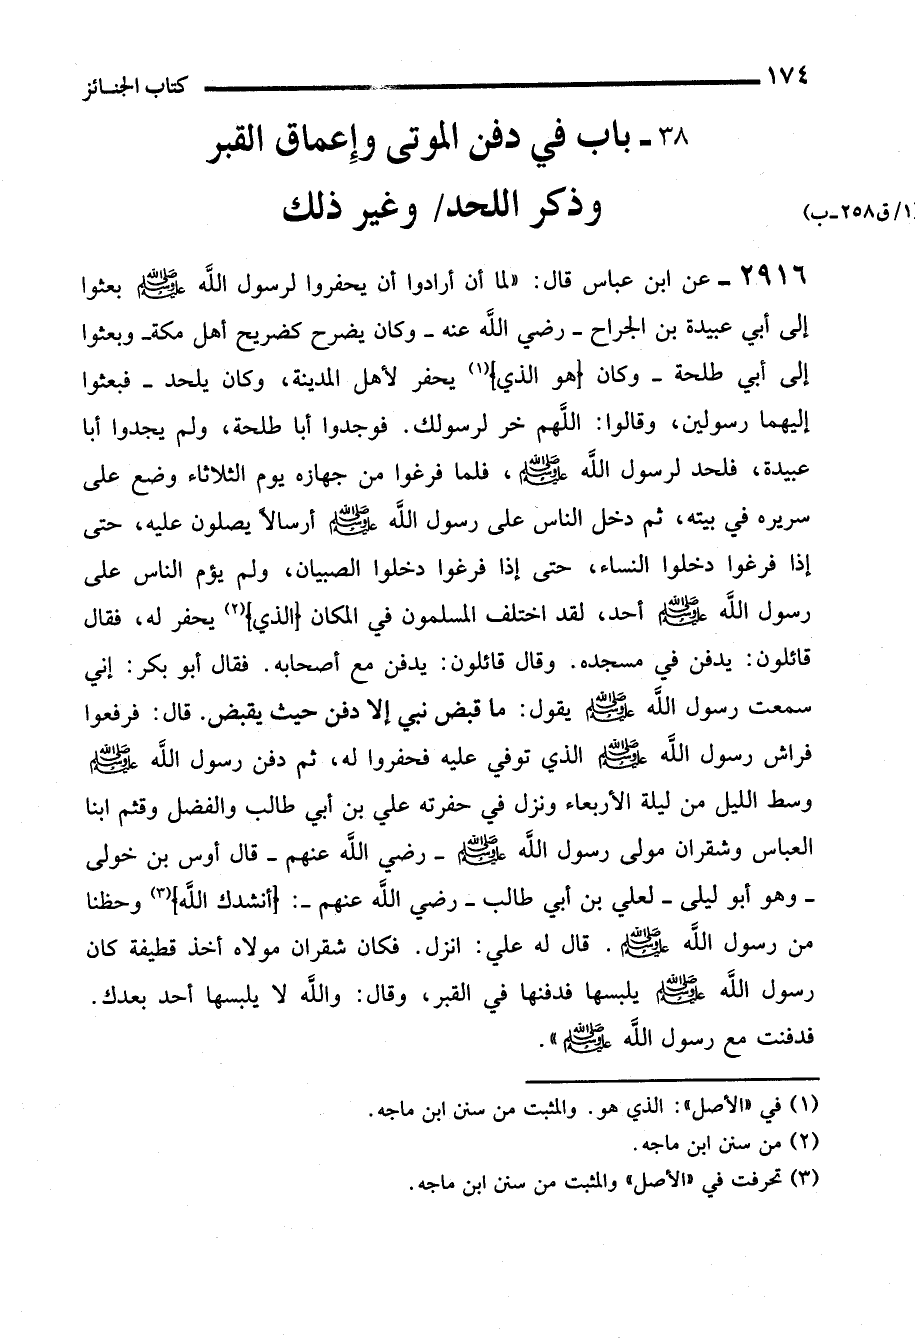 ١٧٤ كتاب الجنائز
٣٨ - باب في دفن الموتى وإعماق القبر
وذكر اللحد/ وغير ذلك
١/ق٢٥٨-ب)
٢٩١٦ - عن ابن عباس قال: «لما أن أرادوا أن يحفروا لرسول اللَّه ﷺ بعثوا
إلى أبي عبيدة بن الجراح - رضي اللَّه عنه - وكان يضرح كضريح أهل مكة- وبعثوا
إلى أبي طلحة - وكان {هو الذي}(١) يحفر لأهل المدينة، وكان يلحد - فبعثوا
إليهما رسولين، وقالوا: اللَّهم خر لرسولك. فوجدوا أبا طلحة، ولم يجدوا أبا
عبيدة، فلحد لرسول اللَّه ﷺ، فلما فرغوا من جهازه يوم الثلاثاء وضع على
سريره في بيته، ثم دخل الناس على رسول اللَّه ﷺ أرسالاً يصلون عليه، حتى
إذا فرغوا دخلوا النساء، حتى إذا فرغوا دخلوا الصبيان، ولم يؤم الناس على
رسول اللَّه ﷺ أحد، لقد اختلف المسلمون في المكان {الذي}(٢) يحفر له، فقال
قائلون: يدفن في مسجده. وقال قائلون: يدفن مع أصحابه. فقال أبو بكر: إني
سمعت رسول اللَّه ﷺ يقول: ما قبض نبي إلا دفن حيث يقبض. قال: فرفعوا
فراش رسول اللَّه ﷺ الذي توفي عليه فحفروا له، ثم دفن رسول اللَّه ﷺ
وسط الليل من ليلة الأربعاء ونزل في حفرته علي بن أبي طالب والفضل وقثم ابنا
العباس وشقران مولى رسول اللَّه ﷺ - رضي اللَّه عنهم - قال أوس بن خولى
- وهو أبو ليلى - لعلي بن أبي طالب - رضي اللَّه عنهم -: {أنشدك اللَّه}(٣) وحظنا
من رسول اللَّه ﷺ. قال له علي: انزل. فكان شقران مولاه أخذ قطيفة كان
رسول اللَّه ﷺ يلبسها فدفنها في القبر، وقال: واللَّه لا يلبسها أحد بعدك.
فدفنت مع رسول اللَّه ﷺ».
(١) في «الأصل»: الذي هو. والمثبت من سنن ابن ماجه.
(٢) من سنن ابن ماجه.
(٣) تحرفت في «الأصل» والمثبت من سنن ابن ماجه.